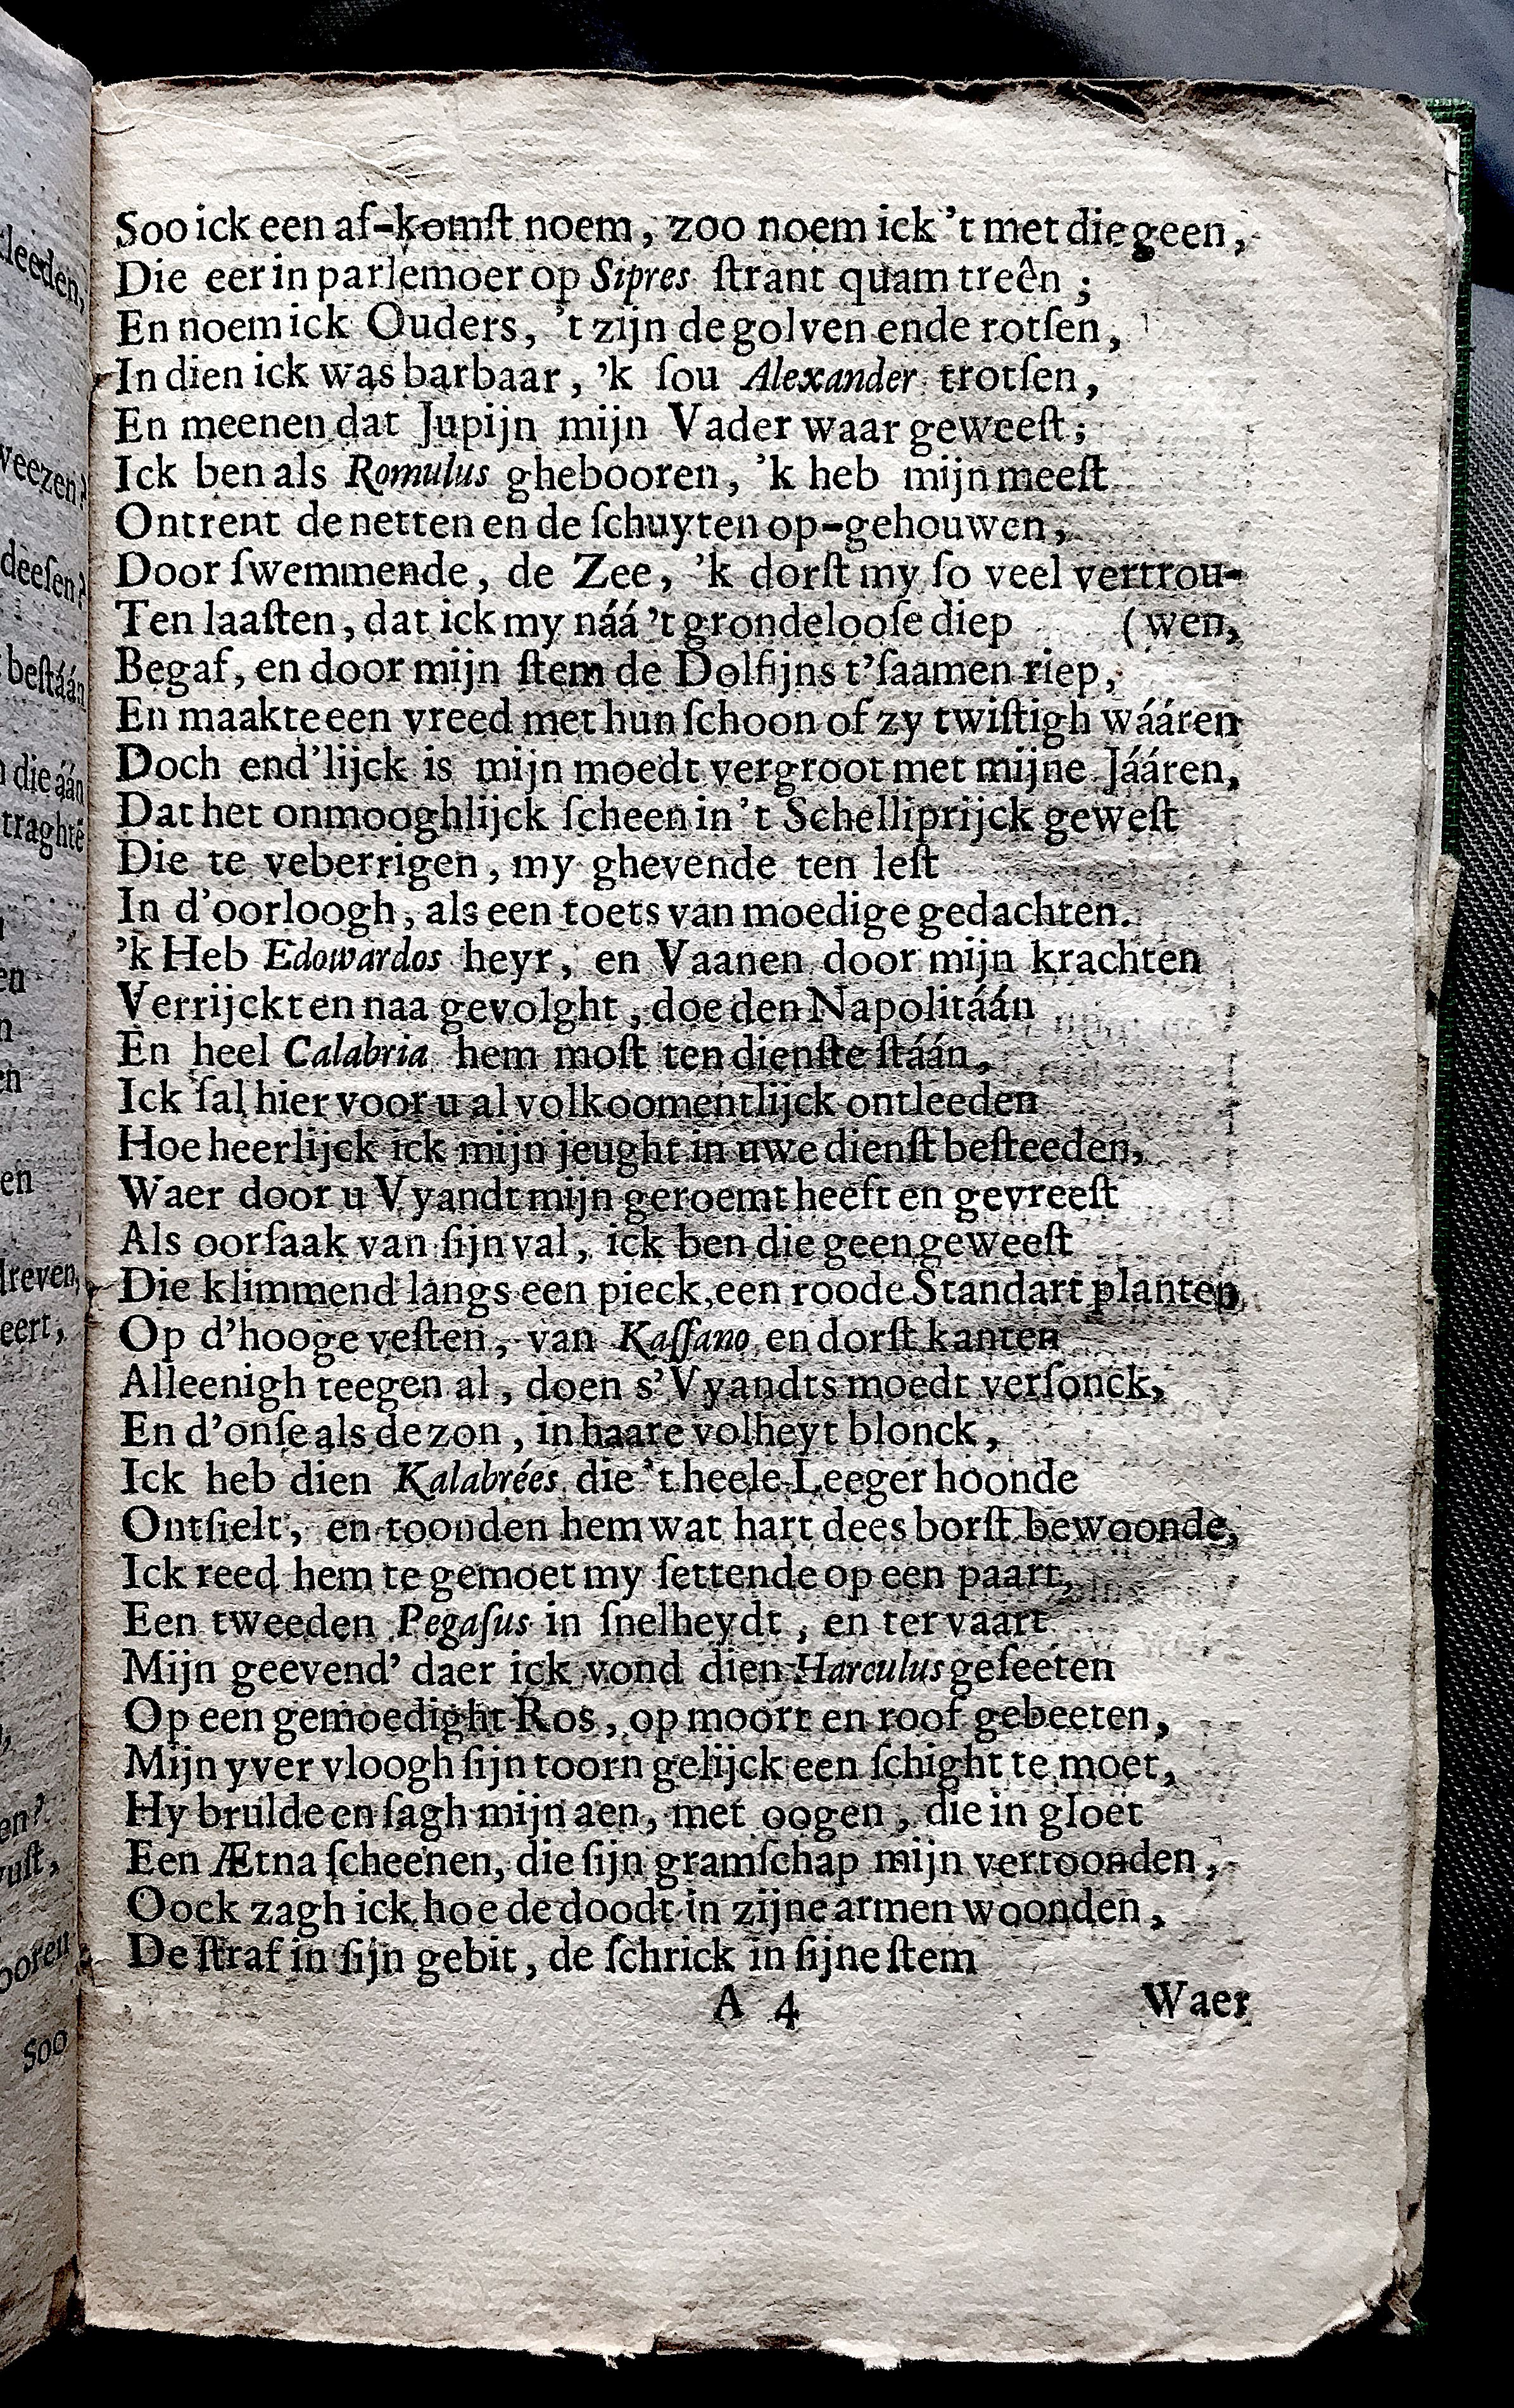 Soo ick een af-komſt noem, zoo noem ick 't met die geen,
Die eer in parlemoer op Sipres ſtrant quam treên;
En noem ick Ouders, 't zijn de golven ende rotſen,
In dien ick was barbaar, 'k ſou Alexander trotſen,
En meenen dat Jupijn mijn Vader waar geweeſt;
Ick ben als Romulus ghebooren, 'k heb mijn meeſt
Ontrent de netten en de ſchuyten op-gehouwen,
Door ſwemmende, de Zee, 'k dorſt my ſo veel vertrou-
Ten laaſten, dat ick my náá 't grondelooſe diep (wen,
Begaf, en door mijn ſtem de Dolfijns t'ſaamen riep,
En maakte een vreed met hun ſchoon of zy twiſtigh wááren
Doch end'lijck is mijn moedt vergroot met mijne Jááren,
Dat het onmooghlijck ſcheen in 't Schelliprijck geweſt
Die te veberrigen, my ghevende ten leſt
In d'oorloogh, als een toets van moedige gedachten.
'k Heb Edowardos heyr, en Vaanen door mijn krachten
Verrijckt en naa gevolght, doe den Napolitáán
En heel Calabria hem moſt ten dienſte ſtáán,
Ick ſal hier voor u al volkoomentlijck ontleeden
Hoe heerlijck ick mijn jeught in uwe dienſt beſteeden,
Waer door u Vyandt mijn geroemt heeft en gevreeſt
Als oorſaak van ſijn val, ick ben die geen geweeſt
Die klimmend langs een pieck, een roode Standart planten,
Op d'hooge veſten, van Kaſſano, en dorſt kanten
Alleenigh teegen al, doen s'Vyandts moedt verſonck,
En d'onſe als de zon, in haare volheyt blonck,
Ick heb dien Kalabrées die 't heele Leeger hoonde
Ontſielt, en toonden hem wat hart dees borſt bewoonde,
Ick reed hem te gemoet my ſettende op een paart,
Een tweeden Pegaſus in ſnelheydt, en ter vaart
Mijn geevend' daer ick vond dien Harculus geſeeten
Op een gemoedight Ros, op moort en roof gebeeten,
Mijn yver vloogh ſijn toorn gelijck een ſchight te moet,
Hy brulde en ſagh mijn aen, met oogen, die in gloet
Een Ætna ſcheenen, die ſijn gramſchap mijn vertoonden,
Oock zagh ick hoe de doodt in zijne armen woonden,
De ſtraf in ſijn gebit, de ſchrick in ſijne ſtem
A 4 Waer